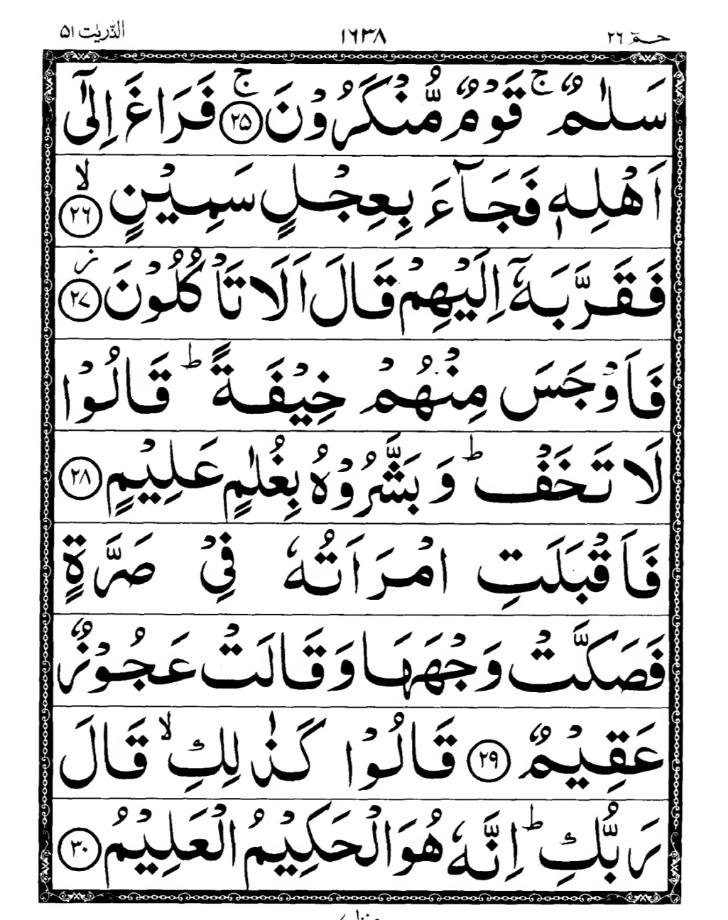 حٰمٓ ٢٦ ١٦٣٨ الذّٰرِیٰت ٥١
سَلٰمٌ ۚ قَوْمٌ مُّنْكَرُوْنَ ۚ ﴿٢٥﴾ فَرَاغَ اِلٰۤی
اَهْلِهٖ فَجَآءَ بِعِجْلٍ سَمِیْنٍ ۙ ﴿٢٦﴾
فَقَرَّبَهٗۤ اِلَیْهِمْ قَالَ اَلَا تَاْكُلُوْنَ ؗ ﴿٢٧﴾
فَاَوْجَسَ مِنْهُمْ خِیْفَةً ؕ قَالُوْا
لَا تَخَفْ ؕ وَبَشَّرُوْهُ بِغُلٰمٍ عَلِیْمٍ ﴿٢٨﴾
فَاَقْبَلَتِ امْرَاَتُهٗ فِیْ صَرَّةٍ
فَصَكَّتْ وَجْهَهَا وَقَالَتْ عَجُوْزٌ
عَقِیْمٌ ﴿٢٩﴾ قَالُوْا كَذٰلِكِ ۙ قَالَ
رَبُّكِ ؕ اِنَّهٗ هُوَ الْحَكِیْمُ الْعَلِیْمُ ﴿٣٠﴾